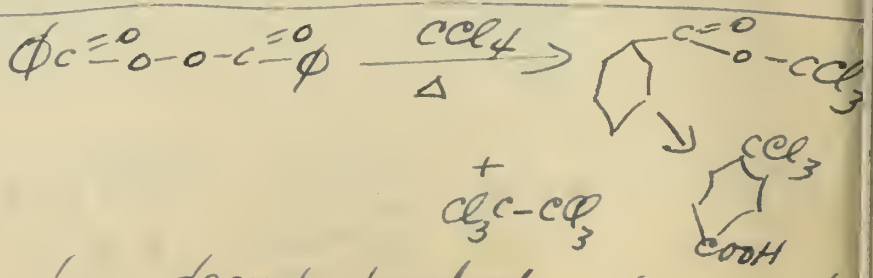 ϕC=O-O-O-C=O-ϕ CCl4 Δ → C=O O-CCl3
+
Cl3C-CCl3
CCl3
COOH